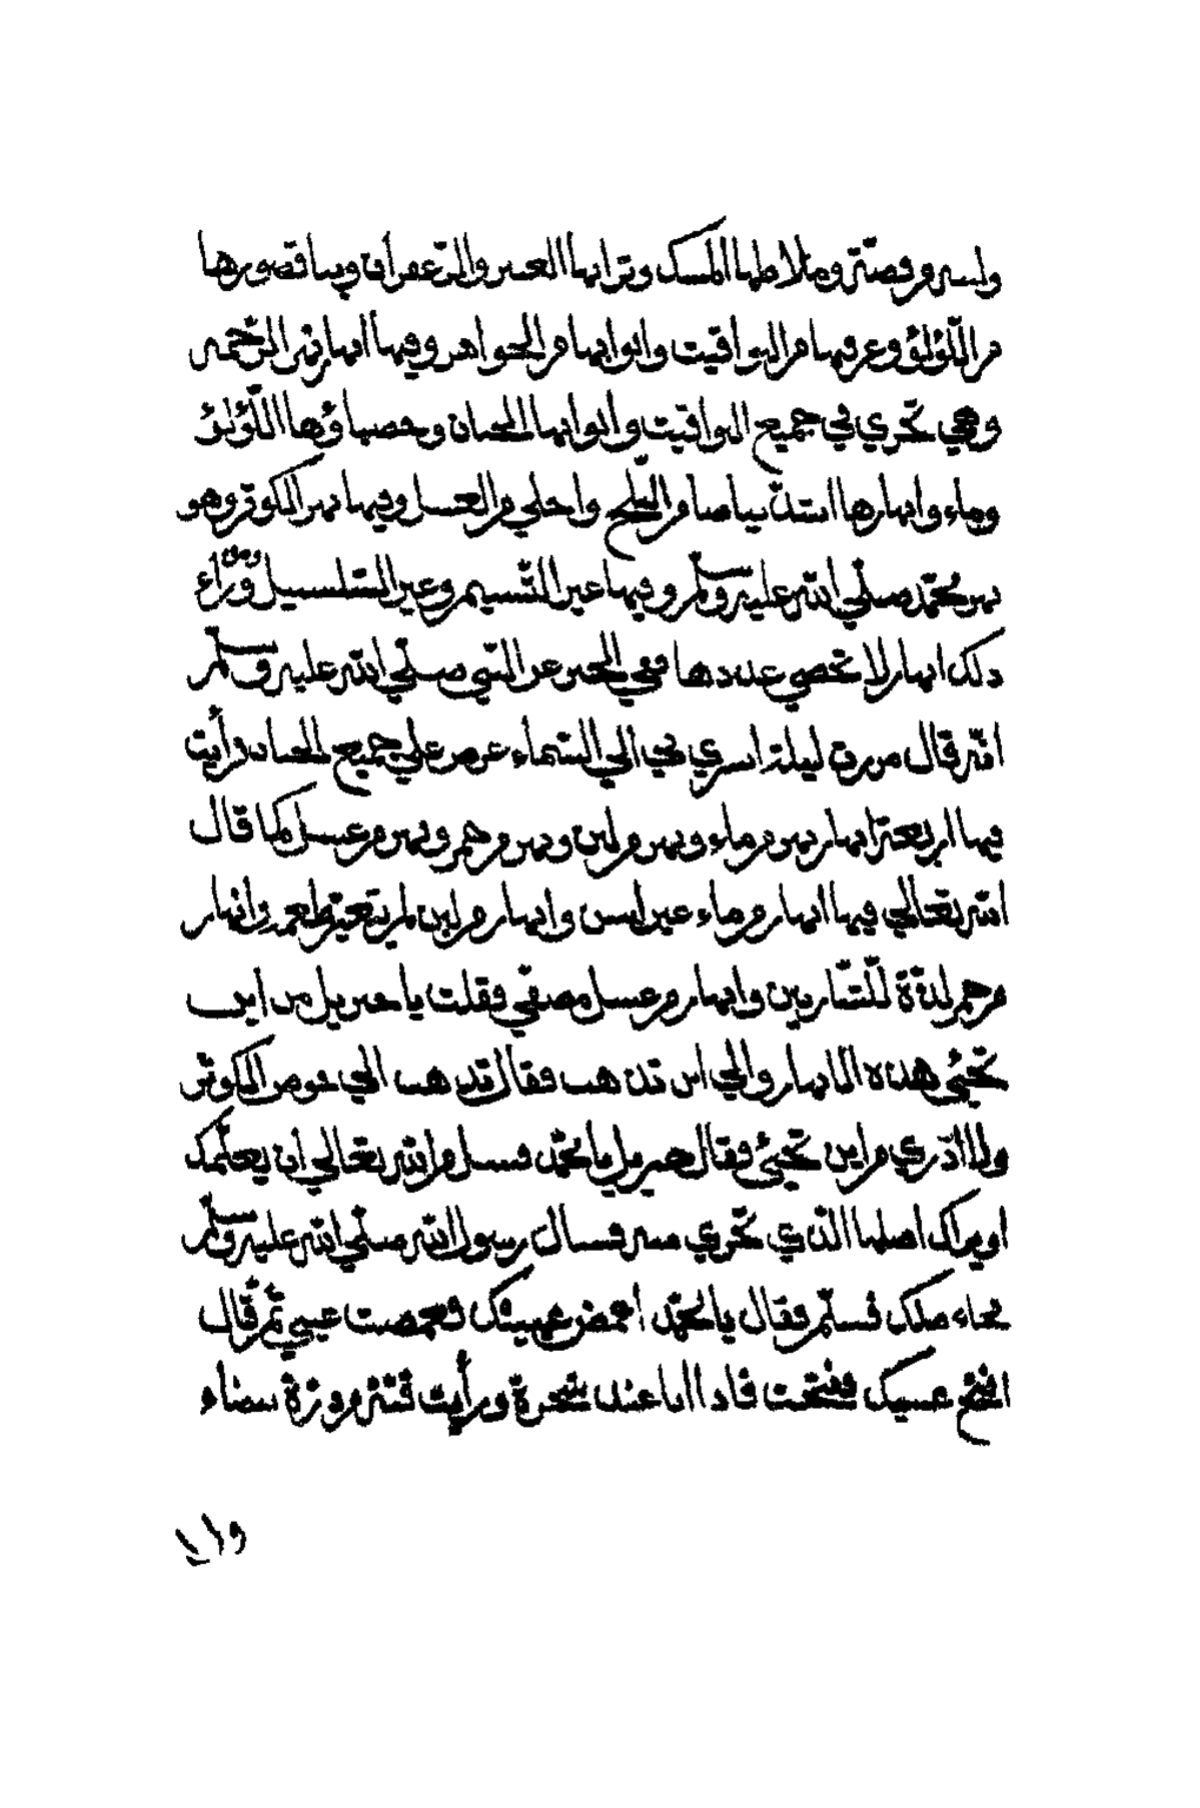 ولبنة من فضة وملاطها المسك وترابها العنبر والزعفران وبنا قصورها
من اللّؤلؤ وغرفها من اليواقيت وابوابها من الجواهر وفيها أنهار نهر الرّحمه
وهي تجري في جميع البواقيت وأبوابها الجنان وحصباؤها اللّؤلؤ
وماء وانهارها اشدّ بياضا من الثّلج واحلي من العسل وفيها نهر الكوثر وهو
نهر محمّد صلّي الله عليه وسلّم وفيها عين التّسنيم وعين السّلسبيل ومن ورآء
ذلك انهار لا تحصي عددها ففي الخبر عن النّبي صلّي الله عليه وسلّم
انّه قال مررت ليلة اسري بي الي السّماء عرض علي جميع الجنان ورأيت
فيها اربعة انهار نهر من ماء ونهر من لبن ونهر من خمر ونهر من عسل كما قال
الله تعالي فيها انهار من ماء غير اسن وانهار من لبن لم يتغيّر طعمه وانهار
من خمر لذّة للّشّاربين وانهار من عسل مصفّي فقلت يا جبريل من اين
تجيئ هذه الانهار والي اين تذهب فقال تذهب الي حوض الكوثر
ولا ادّري من اين تجيئ فقال جبريل يا محمّد فسل من الله تعالي أن يعلّمك
او يراك اصلها الذي تجري منه فسال رسول الله صلّي الله عليه وسلّم
نجاء ملك فسلّم فقال يا محمّد أغمض عينيك فغمضت عيني ثمّ قال
افتح عينيك ففتحت فاذا انا عند شجرة ورأيت قبّة من درّة بيضاء